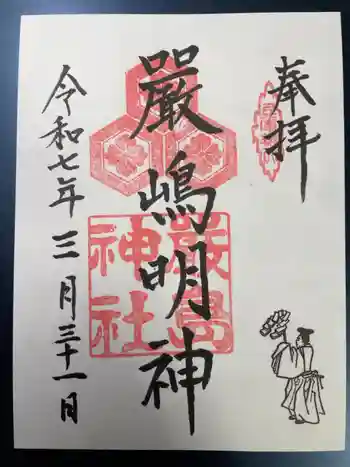 奉拝
厳嶋明神
厳島神社
令和七年三月三十一日